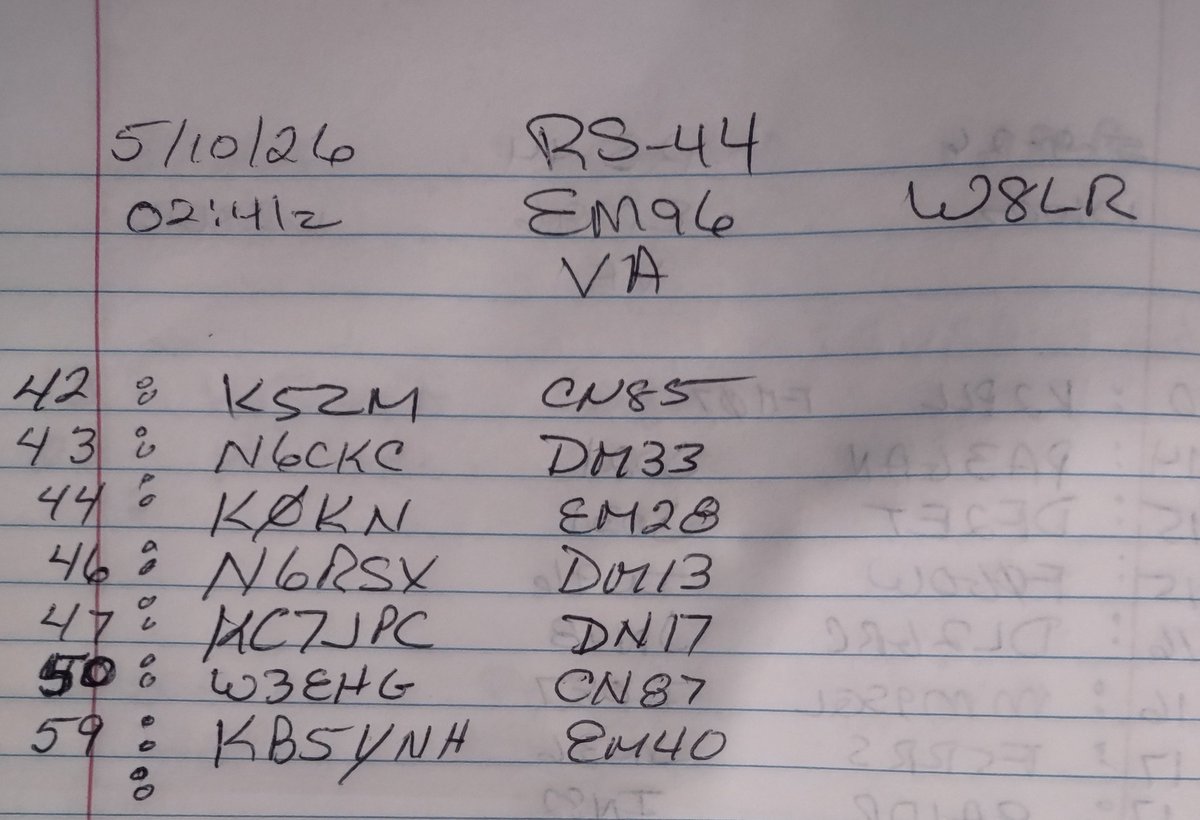 5/10/26 RS-44
02:41z EM96 W8LR
VA
42 : K5ZM CN85
43 : N6CKC DM33
44 : KØKN EM28
46 : N6RSX DM13
47 : KC7JPC DN17
50 : W3EHG CN87
59 : KB5YNH EM40
: